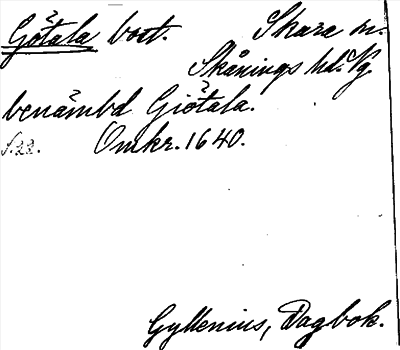 Götala bost. Skara m.
Skånings hd. Vg.
benämbd Giötala.
S. 22. Omkr. 1640.
Gyllenius, Dagbok.